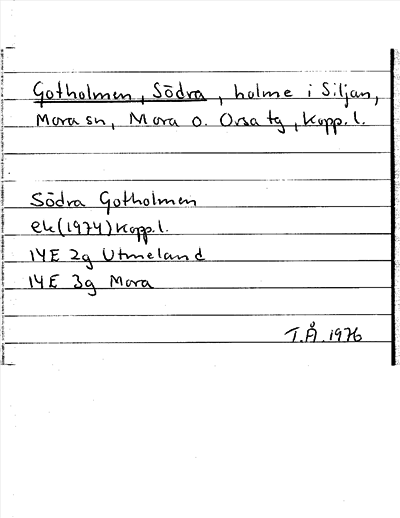 Gotholmen, Södra, holme i Siljan,
Mora sn, Mora o. Orsa tg, Kopp. l.
Södra Gotholmen
ek (1974) Kopp. l.
14E 2g Utmeland
14E 3g Mora
T.Å. 1976